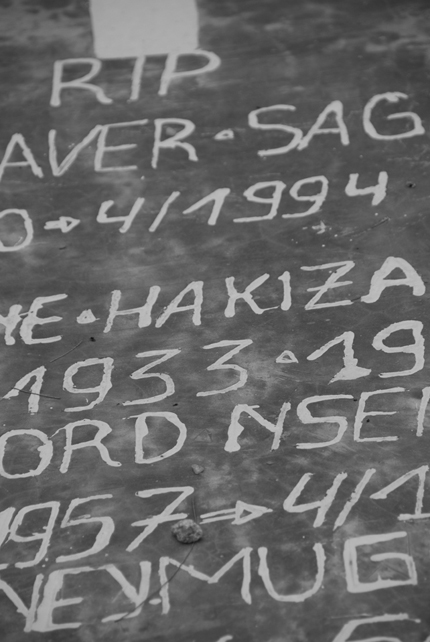 RIP
AVER·SAG
0→4/1994
NE·HAKIZA
1933·19
ORD NSE
1957⇒4/1
MUG